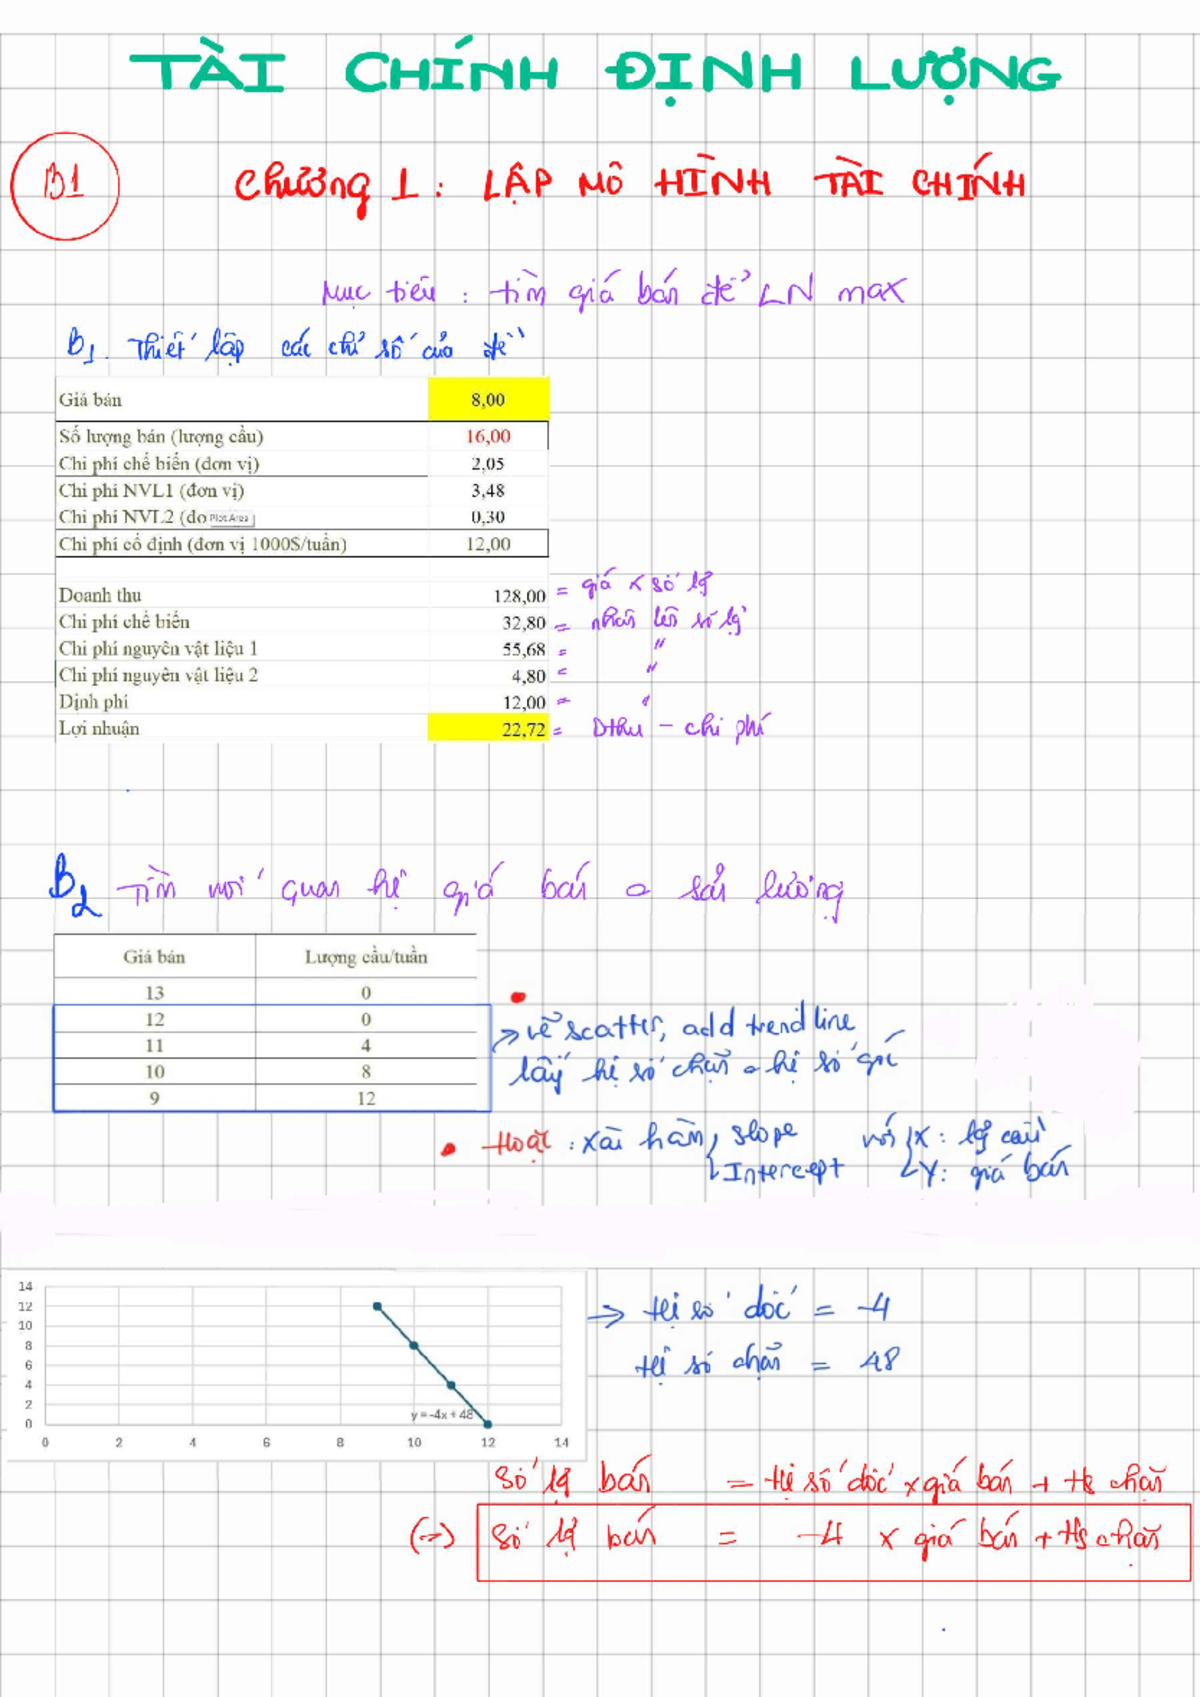 TÀI CHÍNH ĐỊNH LƯỢNG
B1
Chương 1 : LẬP MÔ HÌNH TÀI CHÍNH
Mục tiêu : tìm giá bán để LN max
B1. Thiết lập các chỉ số của đề
Giá bán 8,00
Số lượng bán (lượng cầu) 16,00
Chi phí chế biến (đơn vị) 2,05
Chi phí NVL1 (đơn vị) 3,48
Chi phí NVL2 (đo Plot Area 0,30
Chi phí cố định (đơn vị 1000$/tuần) 12,00
Doanh thu 128,00 = giá x số lg
Chi phí chế biến 32,80 = nhân lên số lg
Chi phí nguyên vật liệu 1 55,68 = "
Chi phí nguyên vật liệu 2 4,80 = "
Định phí 12,00 = "
Lợi nhuận 22,72 = Dthu - chi phí
B2 Tìm mối quan hệ giá bán sản lượng
Giá bán Lượng cầu/tuần
13 0
12 0
11 4
10 8
9 12
→ vẽ scatter, add trendline
lấy hệ số chặn hệ số góc
Hoặc : xài hàm, slope với X : lg cầu
Intercept Y : giá bán
14
12
10
8
6
4
2
0
y = -4x + 48
0 2 4 6 8 10 12 14
→ Hệ số dốc = -4
Hệ số chặn = 48
Số lg bán = Hệ số dốc x giá bán + Hs chặn
(→) Số lg bán = -4 x giá bán + Hs chặn